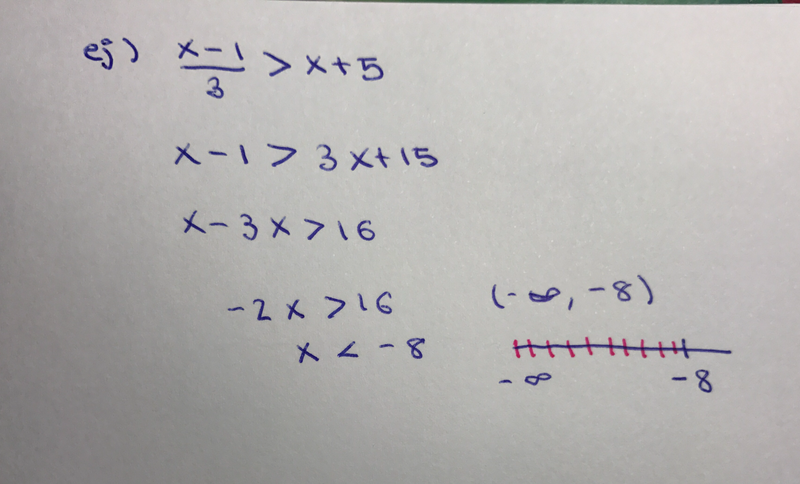 ej) x-1/3 > x+5
x-1 > 3x+15
x-3x>16
-2x >16
x < -8
(-∞, -8)
-∞ -8